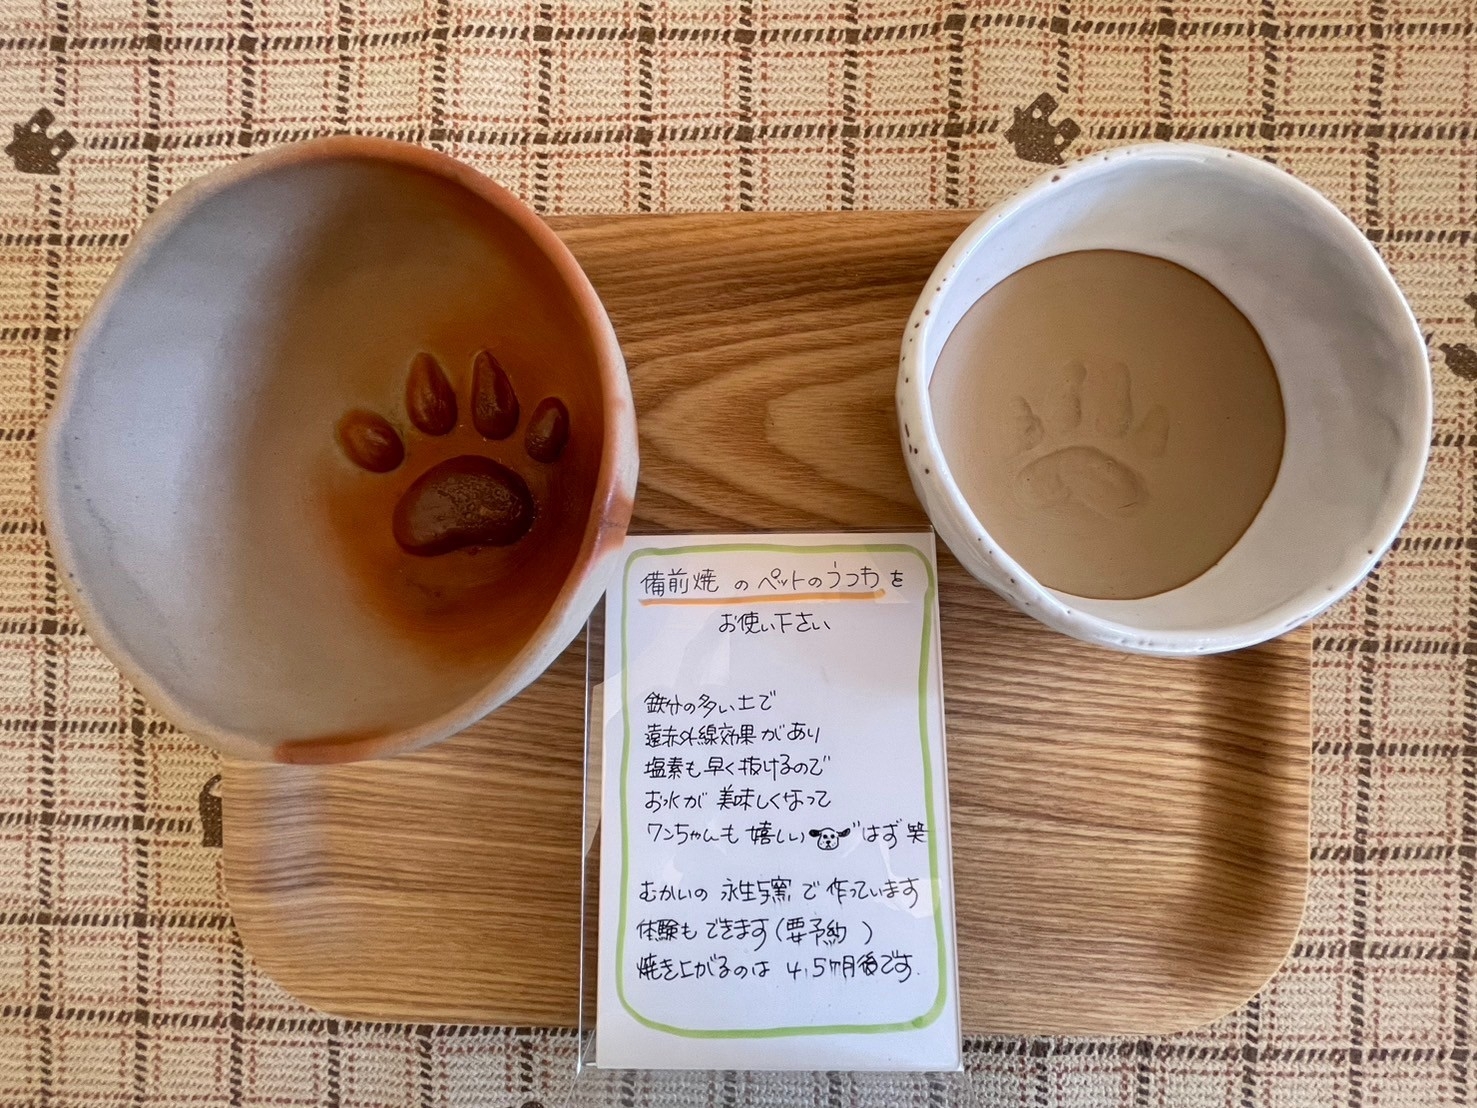 備前焼のペットのうつわを
お使い下さい
鉄分の多い土で
遠赤外線効果があり
塩素も早く抜けるので
お水が美味しくなって
ワンちゃんも嬉しいはず笑
むかいの永生窯で作っています
体験もできます(要予約)
焼き上がるのは4,5ヶ月後です.